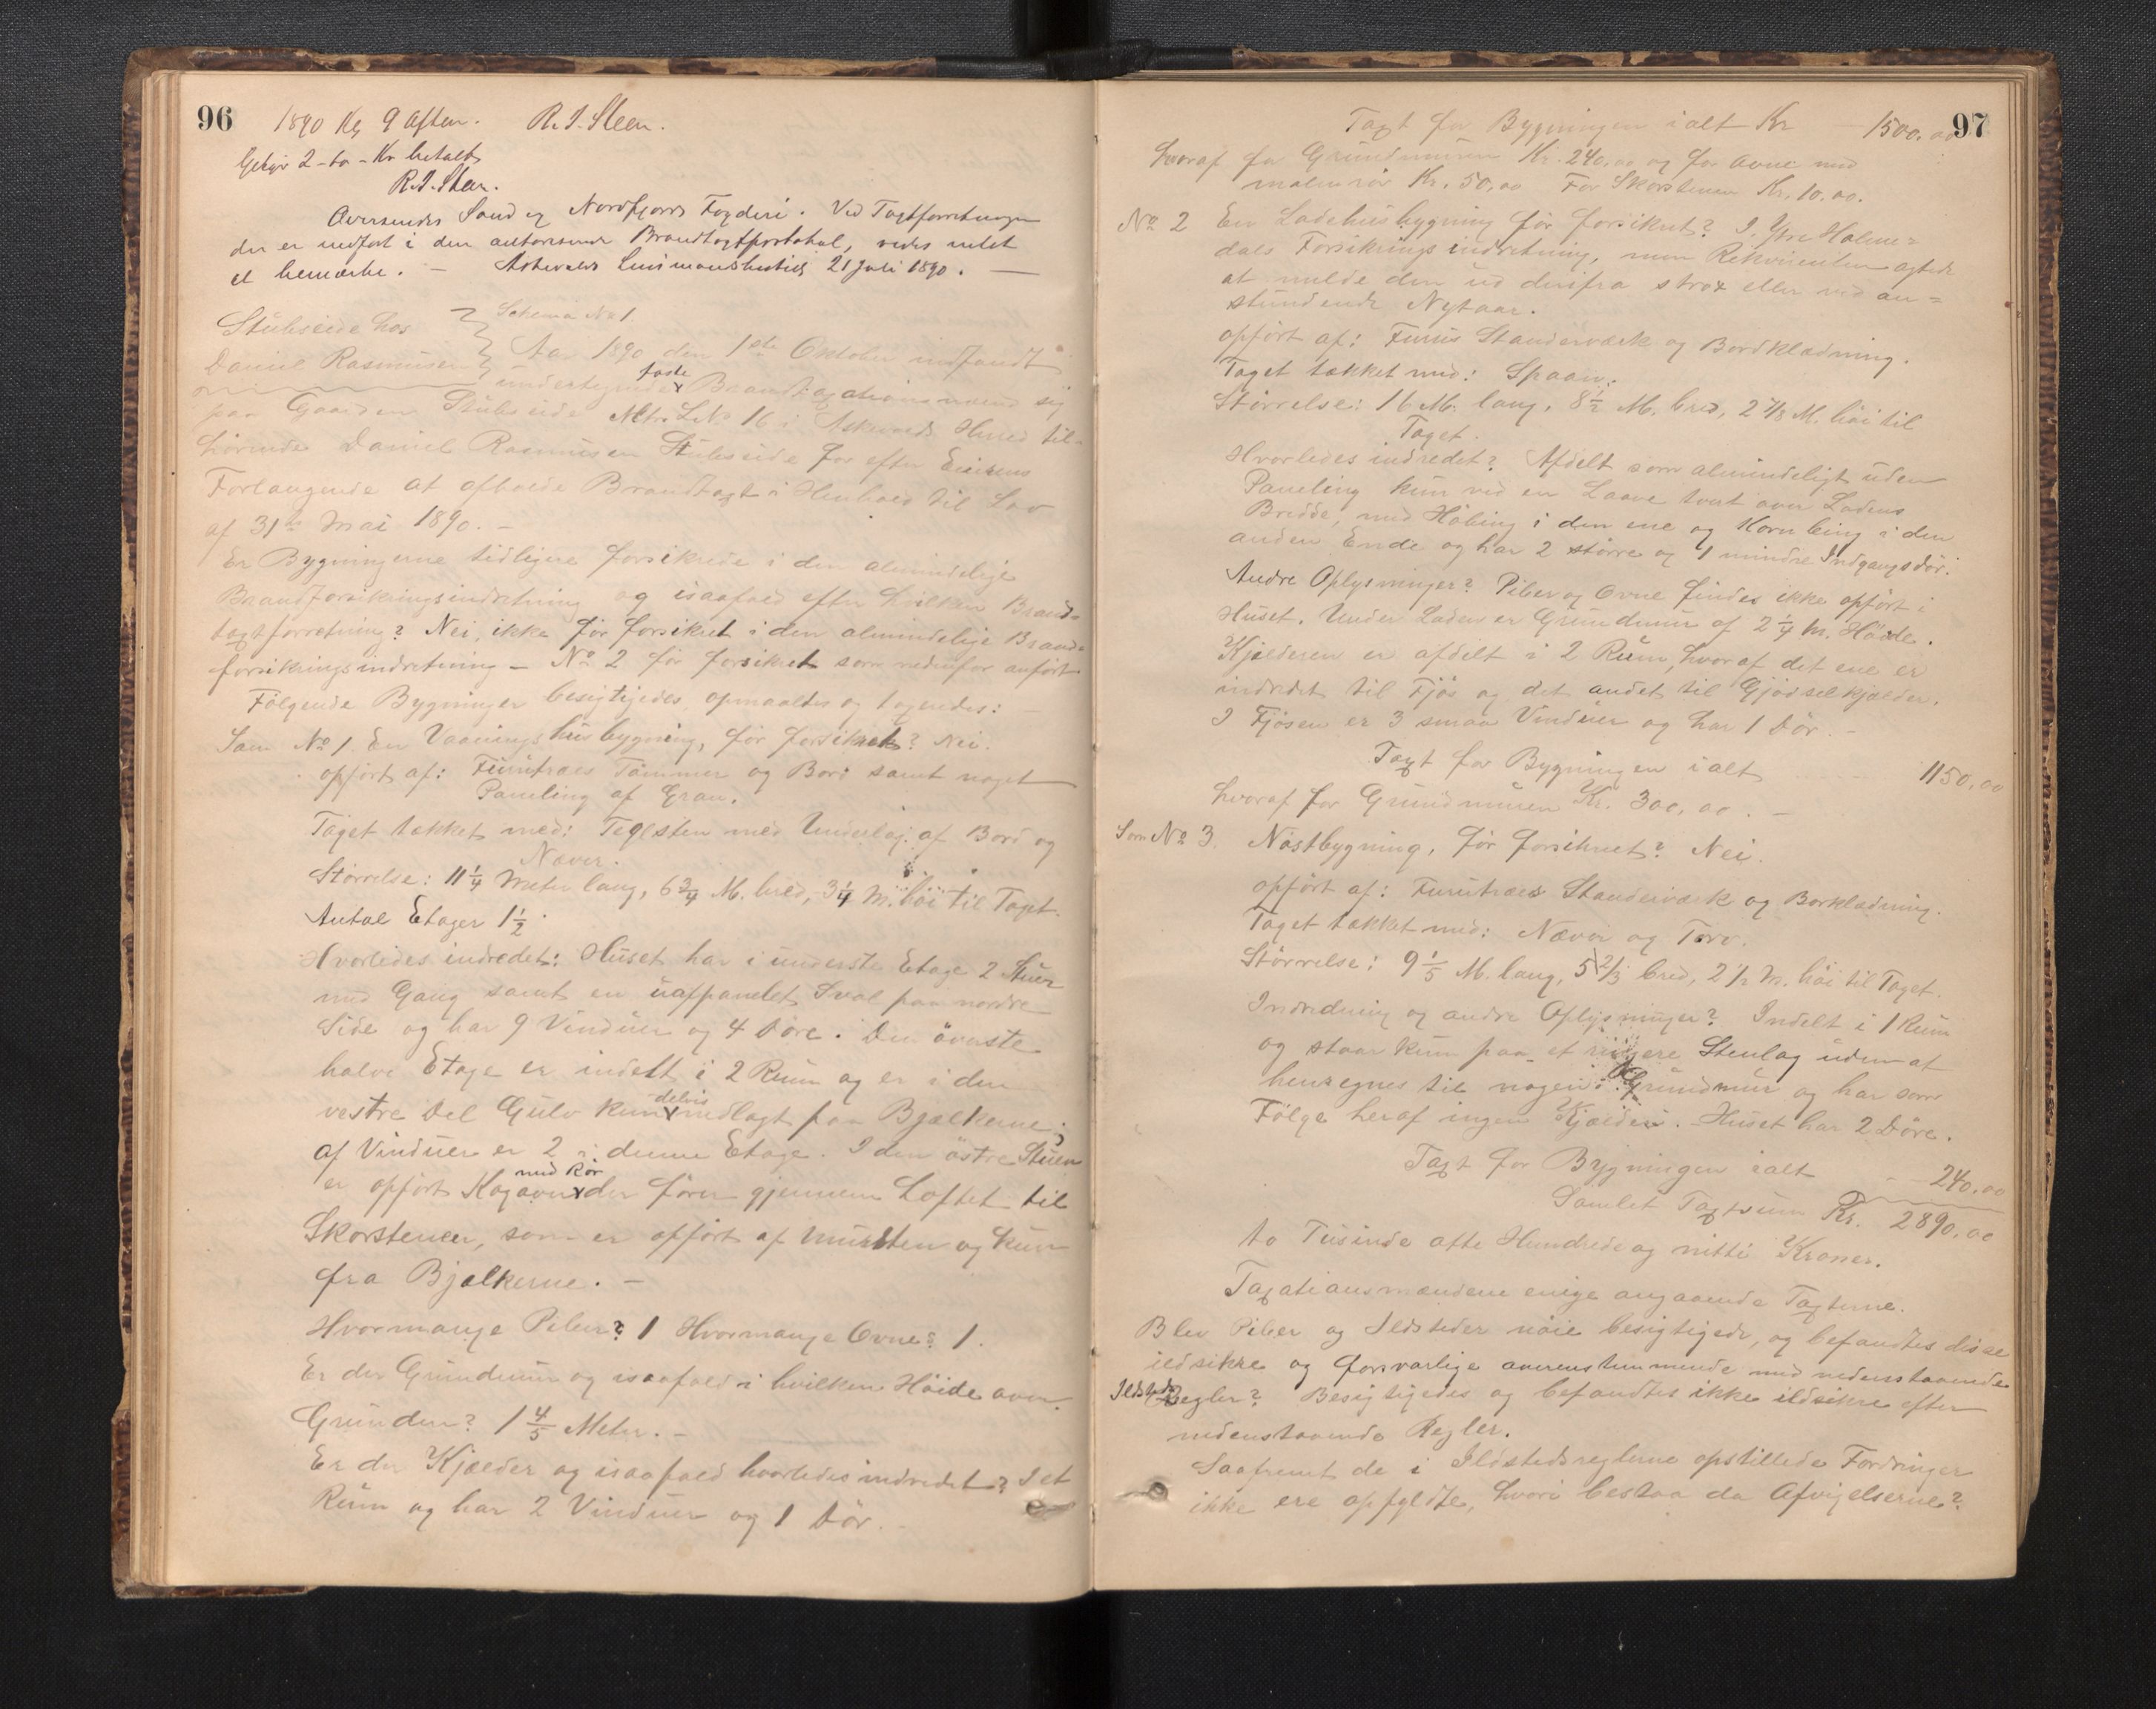 96
1890 Kl. 9 Aften. R. J. Steen.
Gebyr 2 - to - Kr betalt
R. J. Steen.
Oversendes Sønd og Nordfjords Fogderi. Ved Taxtforretningen
der er indført i den autoriserede Brandtaxtprotokol, vides intet
at bemærke. — Askevolds Lensmandsbestill 21 Juli 1890. —
Stubseide hos
Daniel Rasmusen
Schema No 1
Aar 1890 den 1ste Oktober indfandt
undertegnede faste Brandtaxationsmænd sig
paa Gaarden Stubseide Mtr. L. No 16 i Askevolds Herred til-
hørende Daniel Rasmusen Stubseide for efter Eierens
Forlangende at afholde Brandtaxt i Henhold til Lov
af 31te Mai 1890. —
Er Bygningerne tidligere forsikrede i den almindelige
Brandforsikringsindretning og isaafald efter hvilken Brand-
taxtforretning? Nei, ikke før forsikret i den almindelige Brand-
forsikringsindretning — No 2 før forsikret som nedenfor anført
Følgende Bygninger besigtigedes, opmaaltes og taxeredes:
Som No 1. En Vaaningshusbygning, før forsikret? Nei.
opført af: Furutræs Tømmer og Bord samt noget
Paneling af Gran.
Taget tækket med: Teglsten med Underlag af Bord og
Næver.
Størrelse: 11 1/4 Meter lang, 6 3/4 M. bred, 3 1/4 M. høi til Taget.
Antal Etager 1 1/2.
Hvorledes indredet: Huset har i underste Etage 2 Stuer
med Gang samt en uafpanelet Sval paa nordre
Side og har 9 Vinduer og 4 Døre. Den øverste
halve Etage er indelt i 2 Rum og er i den
vestre Del Gulv kun delvis nedlagt paa Bjælkerne;
af Vinduer er 2 i denne Etage. I den østre Stuen
er opført Kogeovn med Rør der fører gjennem Loftet til
Skorstenen, som er opført af Mursten og kun
fra Bjælkerne. —
Hvormange Piber? 1 Hvormange Ovne? 1.
Er der Grundmur og isaafald i hvilken Høide over
Grunden? 1 4/5 Meter. —
Er der Kjælder og isaafald hvorledes indredet? I et
Rum og har 2 Vinduer og 1 Dør. —
97
Taxt for Bygningen ialt Kr 1500.00
hvoraf for Grundmuren Kr. 240,00 og for Ovne med
malmrør Kr. 50,00 For Skorstenen Kr. 10.00.
No 2 En Ladehusbygning før forsikret? I Ytre Holme-
dals Forsikringsindretning, men Rekvirenten agtede
at melde den ud derifra strax eller ved an-
stundende Nytaar.
opført af: Furus Standerværk og Bordklædning.
Taget tækket med: Spaan.
Størrelse: 16 M. lang, 8 1/2 M. bred, 2 2/3 M. høi til
Taget.
Hvorledes indredet? Afdelt som almindeligt uden
Paneling kun ved en Laave tvert over Ladens
Bredde, med Høbing i den ene og Kornbing i den
anden Ende og har 2 større og 1 mindre Indgangsdør.
Andre Oplysninger? Piber og Ovne findes ikke opført i
Huset. Under Laden er Grundmur af 2 1/4 M. Høide.
Kjælderen er afdelt i 2 Rum, hvoraf det ene er
indredet til Fjøs og det andet til Gjødselkjælder.
I Fjøsen er 3 smaa Vinduer og har 1 Dør. —
Taxt for Bygningen ialt 1150,00
hvoraf for Grundmuren Kr. 300,00. —
Som No 3. Nøstbygning, før forsikret? Nei.
opført af: Furutræs Standerværk og Borklædning.
Taget tækket med: Næver og Torv.
Størrelse: 9 1/5 M. lang, 5 2/3 bred, 2 1/2 M. høi til Taget.
Indredning og andre Oplysninger? Indelt i 1 Rum
og staar kun paa et ringere Stenlag uden at
henregnes til nogen Grundmur og har som
Følge heraf ingen Kjælder. Huset har 2 Døre.
Taxt for Bygningen ialt 240,00
Samlet Taxtsum Kr. 2890,00
to Tusinde otte Hundrede og nitti Kroner.
Taxationsmændene enige angaaende Taxterne.
Blev Piber og Ildsteder nøie besigtigede, og befandtes disse
ildsikre og forsvarlige overensstemmende med nedenstaaende
Ildsteds Regler? Besigtigedes og befandtes ikke ildsikre efter
nedenstaaende Regler.
Saafremt de i Ildstedsreglerne opstillede Fordringer
ikke ere opfyldte, hvori bestaa da Afvigelserne?